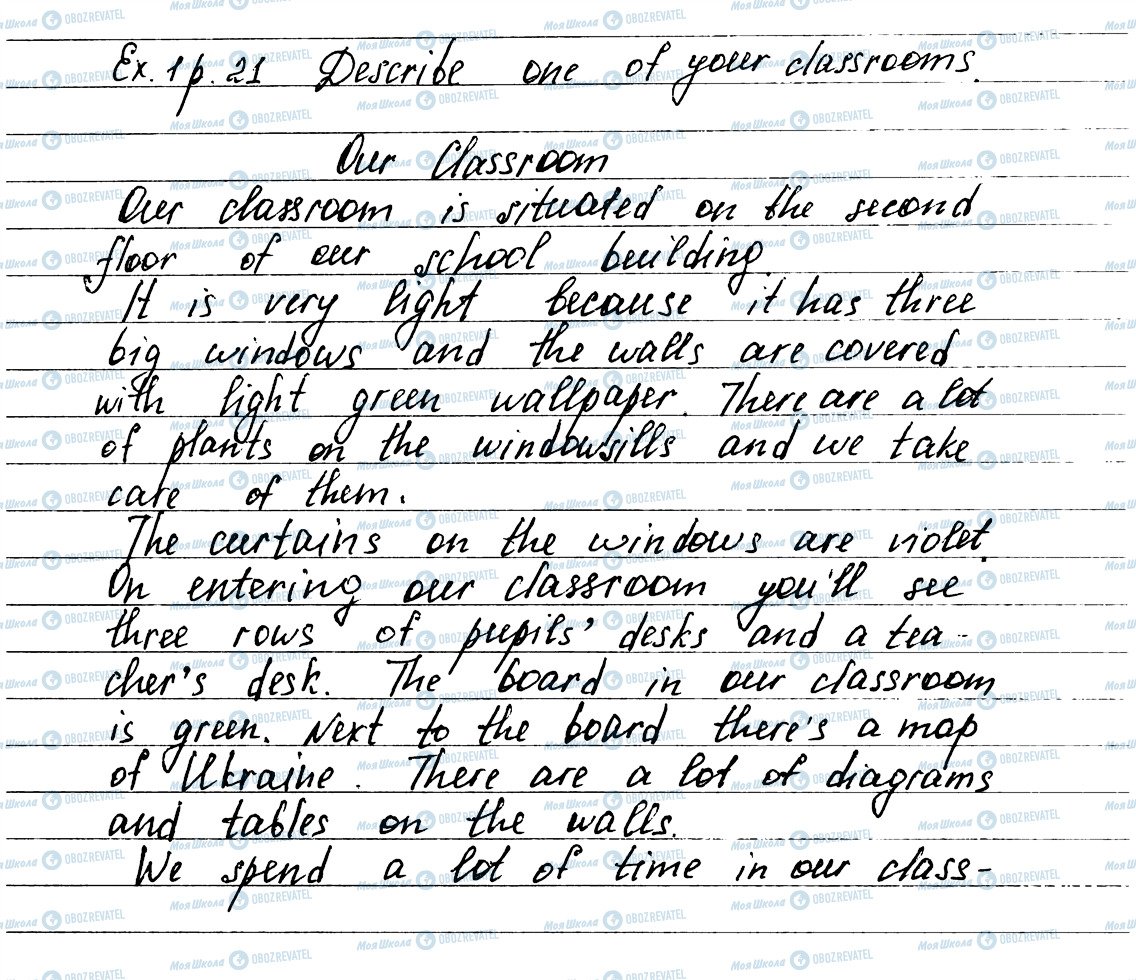 Ex. 1 p. 21 Describe one of your classrooms.
Our Classroom
Our classroom is situated on the second
floor of our school building.
It is very light because it has three
big windows and the walls are covered
with light green wallpaper. There are a lot
of plants on the windowsills and we take
care of them.
The curtains on the windows are violet.
On entering our classroom you'll see
three rows of pupils' desks and a tea-
cher's desk. The board in our classroom
is green. Next to the board there's a map
of Ukraine. There are a lot of diagrams
and tables on the walls.
We spend a lot of time in our class-